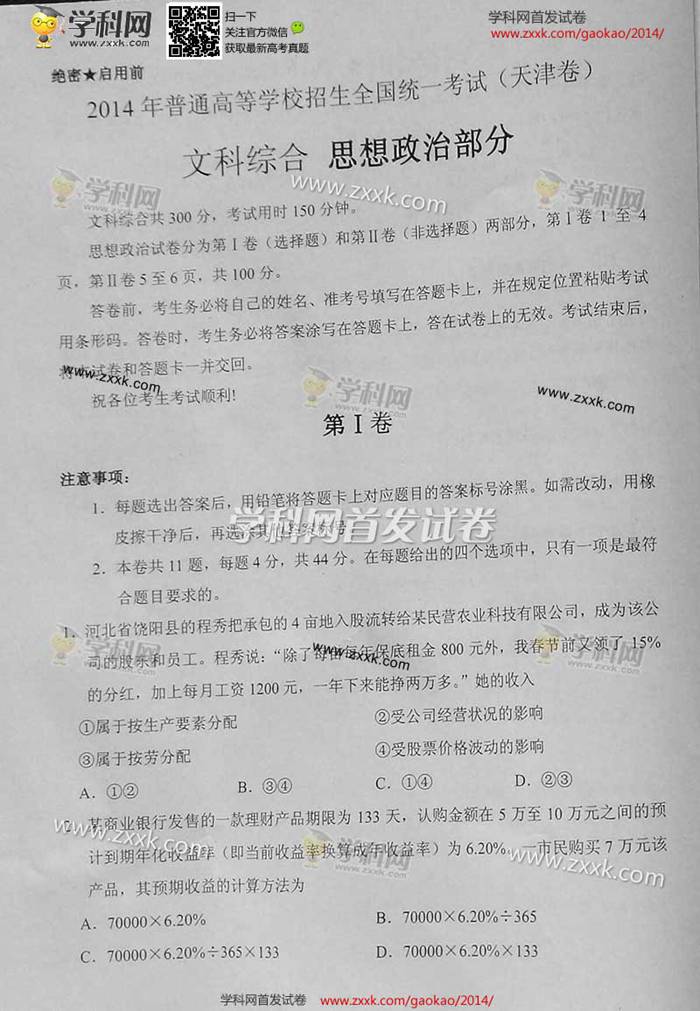 学科网
www.zxxk.com
扫一下
关注官方微信
获取最新高考真题
学科网首发试卷
www.zxxk.com/gaokao/2014/
绝密★启用前
2014 年普通高等学校招生全国统一考试（天津卷）
文科综合 思想政治部分
学科网
www.zxxk.com
文科综合共 300 分，考试用时 150 分钟。
思想政治试卷分为第Ⅰ卷（选择题）和第Ⅱ卷（非选择题）两部分，第Ⅰ卷 1 至 4
页，第Ⅱ卷 5 至 6 页，共 100 分。
答卷前，考生务必将自己的姓名、准考号填写在答题卡上，并在规定位置粘贴考试
用条形码。答卷时，考生务必将答案涂写在答题卡上，答在试卷上的无效。考试结束后，
将本试卷和答题卡一并交回。
www.zxxk.com
学科网
www.zxxk.com
祝各位考生考试顺利!
第Ⅰ卷
注意事项：
1．每题选出答案后，用铅笔将答题卡上对应题目的答案标号涂黑。如需改动，用橡
皮擦干净后，再选涂其他答案标号
学科网首发试卷
2．本卷共 11 题，每题 4 分，共 44 分。在每题给出的四个选项中，只有一项是最符
合题目要求的。
1．河北省饶阳县的程秀把承包的 4 亩地入股流转给某民营农业科技有限公司，成为该公
司的股东和员工。程秀说：“除了每亩每年保底租金 800 元外，我春节前又领了 15%
www.zxxk.com
学科网
的分红，加上每月工资 1200 元，一年下来能挣两万多。”她的收入
①属于按生产要素分配 ②受公司经营状况的影响
③属于按劳分配 ④受股票价格波动的影响
A．①② B．③④ C．①④ D．②③
某商业银行发售的一款理财产品期限为 133 天，认购金额在 5 万至 10 万元之间的预
www.zxxk.com
学科网
计到期年化收益率（即当前收益率换算成年收益率）为 6.20%。一市民购买 7 万元该
www.zxxk.com
产品，其预期收益的计算方法为
A．70000×6.20% B．70000×6.20%÷365
C．70000×6.20%÷365×133 D．70000×6.20%×133
学科网首发试卷 www.zxxk.com/gaokao/2014/